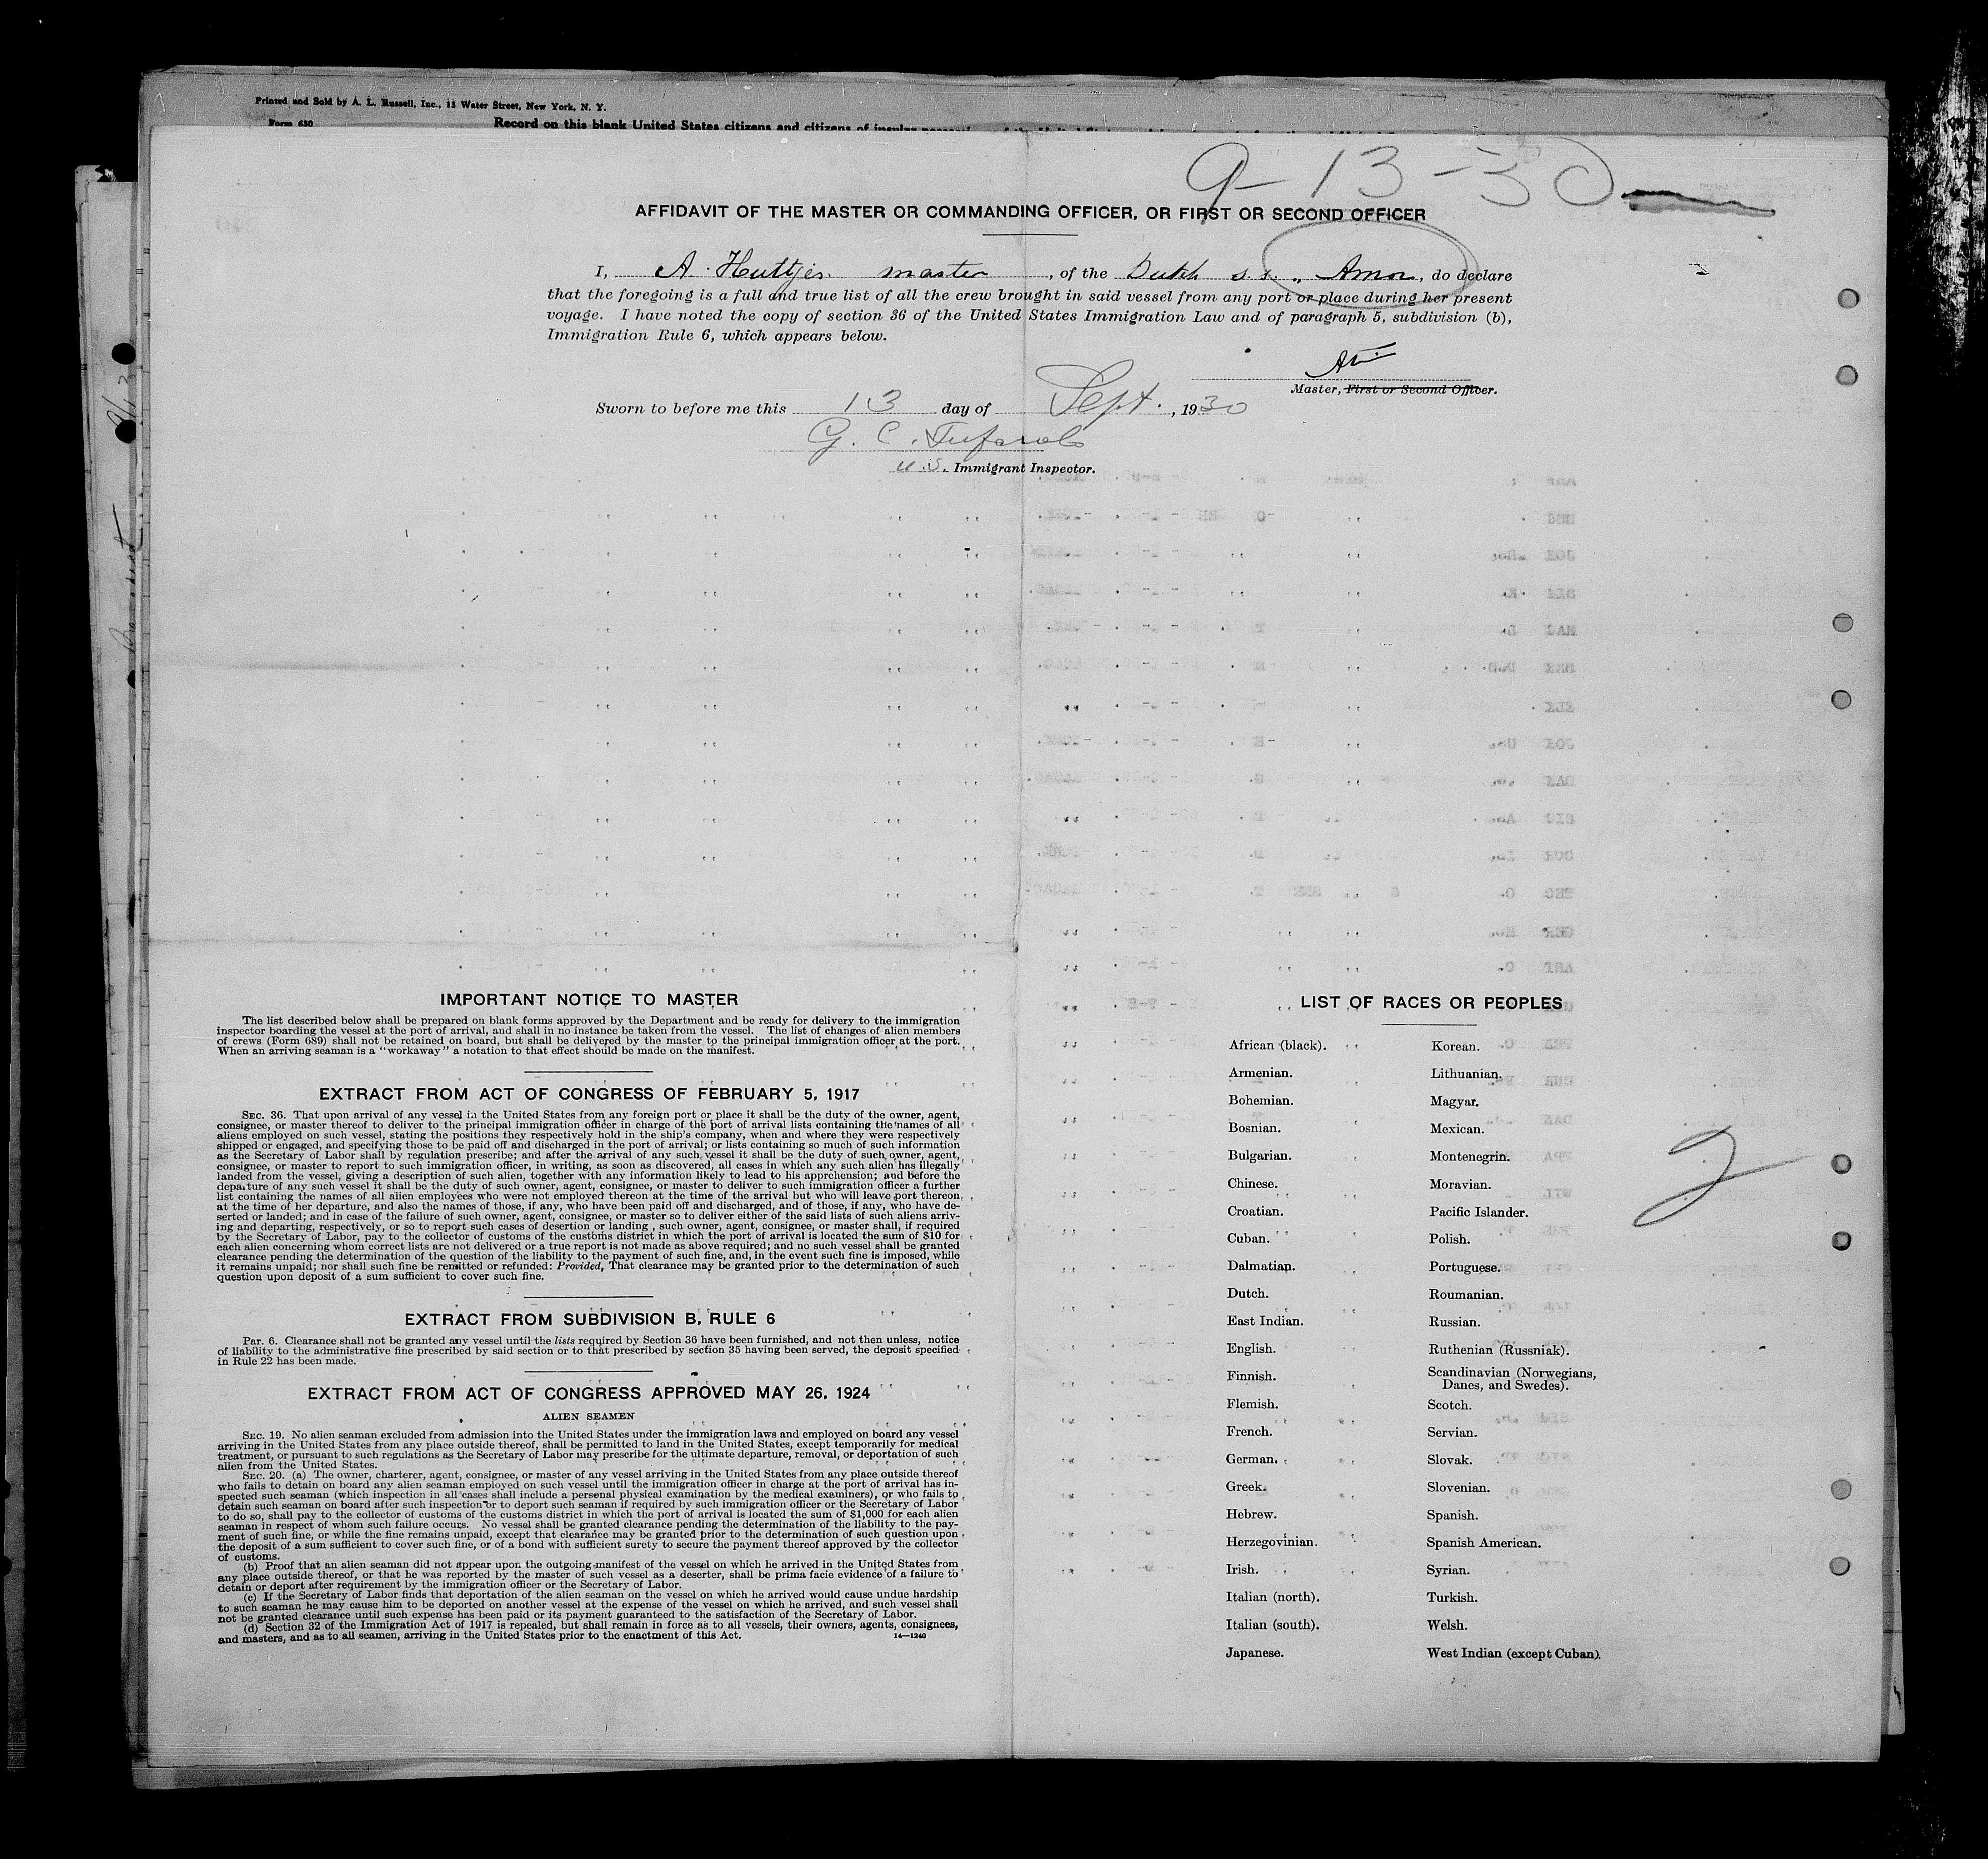 Printed and Sold by A. L. Russell, Inc., 13 Water Street, New York, N. Y.
Form 630
Record on this blank United States citizens and citizens of insular
9-13-30
AFFIDAVIT OF THE MASTER OR COMMANDING OFFICER, OR FIRST OR SECOND OFFICER
I, A. master, of the Dutch s.s. „ Amor, do declare
that the foregoing is a full and true list of all the crew brought in said vessel from any port or place during her present
voyage. I have noted the copy of section 36 of the United States Immigration Law and of paragraph 5, subdivision (b),
Immigration Rule 6, which appears below.
Master, First or Second Officer.
Sworn to before me this 13 day of Sept., 1930
G. C.
U.S. Immigrant Inspector.
IMPORTANT NOTICE TO MASTER
The list described below shall be prepared on blank forms approved by the Department and be ready for delivery to the immigration
inspector boarding the vessel at the port of arrival, and shall in no instance be taken from the vessel. The list of changes of alien members
of crews (Form 689) shall not be retained on board, but shall be delivered by the master to the principal immigration officer at the port.
When an arriving seaman is a "workaway" a notation to that effect should be made on the manifest.
EXTRACT FROM ACT OF CONGRESS OF FEBRUARY 5, 1917
SEC. 36. That upon arrival of any vessel in the United States from any foreign port or place it shall be the duty of the owner, agent,
consignee, or master thereof to deliver to the principal immigration officer in charge of the port of arrival lists containing the names of all
aliens employed on such vessel, stating the positions they respectively hold in the ship's company, when and where they were respectively
shipped or engaged, and specifying those to be paid off and discharged in the port of arrival; or lists containing so much of such information
as the Secretary of Labor shall by regulation prescribe; and after the arrival of any such vessel it shall be the duty of such owner, agent,
consignee, or master to report to such immigration officer, in writing, as soon as discovered, all cases in which any such alien has illegally
landed from the vessel, giving a description of such alien, together with any information likely to lead to his apprehension; and before the
departure of any such vessel it shall be the duty of such owner, agent, consignee, or master to deliver to such immigration officer a further
list containing the names of all alien employees who were not employed thereon at the time of the arrival but who will leave port thereon
at the time of her departure, and also the names of those, if any, who have been paid off and discharged, and of those, if any, who have de-
serted or landed; and in case of the failure of such owner, agent, consignee, or master so to deliver either of the said lists of such aliens arriv-
ing and departing, respectively, or so to report such cases of desertion or landing, such owner, agent, consignee, or master shall, if required
by the Secretary of Labor, pay to the collector of customs of the customs district in which the port of arrival is located the sum of $10 for
each alien concerning whom correct lists are not delivered or a true report is not made as above required; and no such vessel shall be granted
clearance pending the determination of the question of the liability to the payment of such fine, and, in the event such fine is imposed, while
it remains unpaid; nor shall such fine be remitted or refunded: Provided, That clearance may be granted prior to the determination of such
question upon deposit of a sum sufficient to cover such fine.
EXTRACT FROM SUBDIVISION B, RULE 6
Par. 6. Clearance shall not be granted any vessel until the lists required by Section 36 have been furnished, and not then unless, notice
of liability to the administrative fine prescribed by said section or to that prescribed by section 35 having been served, the deposit specified
in Rule 22 has been made.
EXTRACT FROM ACT OF CONGRESS APPROVED MAY 26, 1924
ALIEN SEAMEN
SEC. 19. No alien seaman excluded from admission into the United States under the immigration laws and employed on board any vessel
arriving in the United States from any place outside thereof, shall be permitted to land in the United States, except temporarily for medical
treatment, or pursuant to such regulations as the Secretary of Labor may prescribe for the ultimate departure, removal, or deportation of such
alien from the United States.
SEC. 20. (a) The owner, charterer, agent, consignee, or master of any vessel arriving in the United States from any place outside thereof
who fails to detain on board any alien seaman employed on such vessel until the immigration officer in charge at the port of arrival has in-
spected such seaman (which inspection in all cases shall include a personal physical examination by the medical examiners), or who fails to
detain such seaman on board after such inspection or to deport such seaman if required by such immigration officer or the Secretary of Labor
to do so, shall pay to the collector of customs of the customs district in which the port of arrival is located the sum of $1,000 for each alien
seaman in respect of whom such failure occurs. No vessel shall be granted clearance pending the determination of the liability to the pay-
ment of such fine, or while the fine remains unpaid, except that clearance may be granted prior to the determination of such question upon
the deposit of a sum sufficient to cover such fine, or of a bond with sufficient surety to secure the payment thereof approved by the collector
of customs.
(b) Proof that an alien seaman did not appear upon the outgoing manifest of the vessel on which he arrived in the United States from
any place outside thereof, or that he was reported by the master of such vessel as a deserter, shall be prima facie evidence of a failure to
detain or deport after requirement by the immigration officer or the Secretary of Labor.
(c) If the Secretary of Labor finds that deportation of the alien seaman on the vessel on which he arrived would cause undue hardship
to such seaman he may cause him to be deported on another vessel at the expense of the vessel on which he arrived, and such vessel shall
not be granted clearance until such expense has been paid or its payment guaranteed to the satisfaction of the Secretary of Labor.
(d) Section 32 of the Immigration Act of 1917 is repealed, but shall remain in force as to all vessels, their owners, agents, consignees,
and masters, and as to all seamen, arriving in the United States prior to the enactment of this Act.
14—1240
LIST OF RACES OR PEOPLES
African (black).
Armenian.
Bohemian.
Bosnian.
Bulgarian.
Chinese.
Croatian.
Cuban.
Dalmatian.
Dutch.
East Indian.
English.
Finnish.
Flemish.
French.
German.
Greek.
Hebrew.
Herzegovinian.
Irish.
Italian (north).
Italian (south).
Japanese.
Korean.
Lithuanian.
Magyar.
Mexican.
Montenegrin.
Moravian.
Pacific Islander.
Polish.
Portuguese.
Roumanian.
Russian.
Ruthenian (Russniak).
Scandinavian (Norwegians,
Danes, and Swedes).
Scotch.
Servian.
Slovak.
Slovenian.
Spanish.
Spanish American.
Syrian.
Turkish.
Welsh.
West Indian (except Cuban).
2